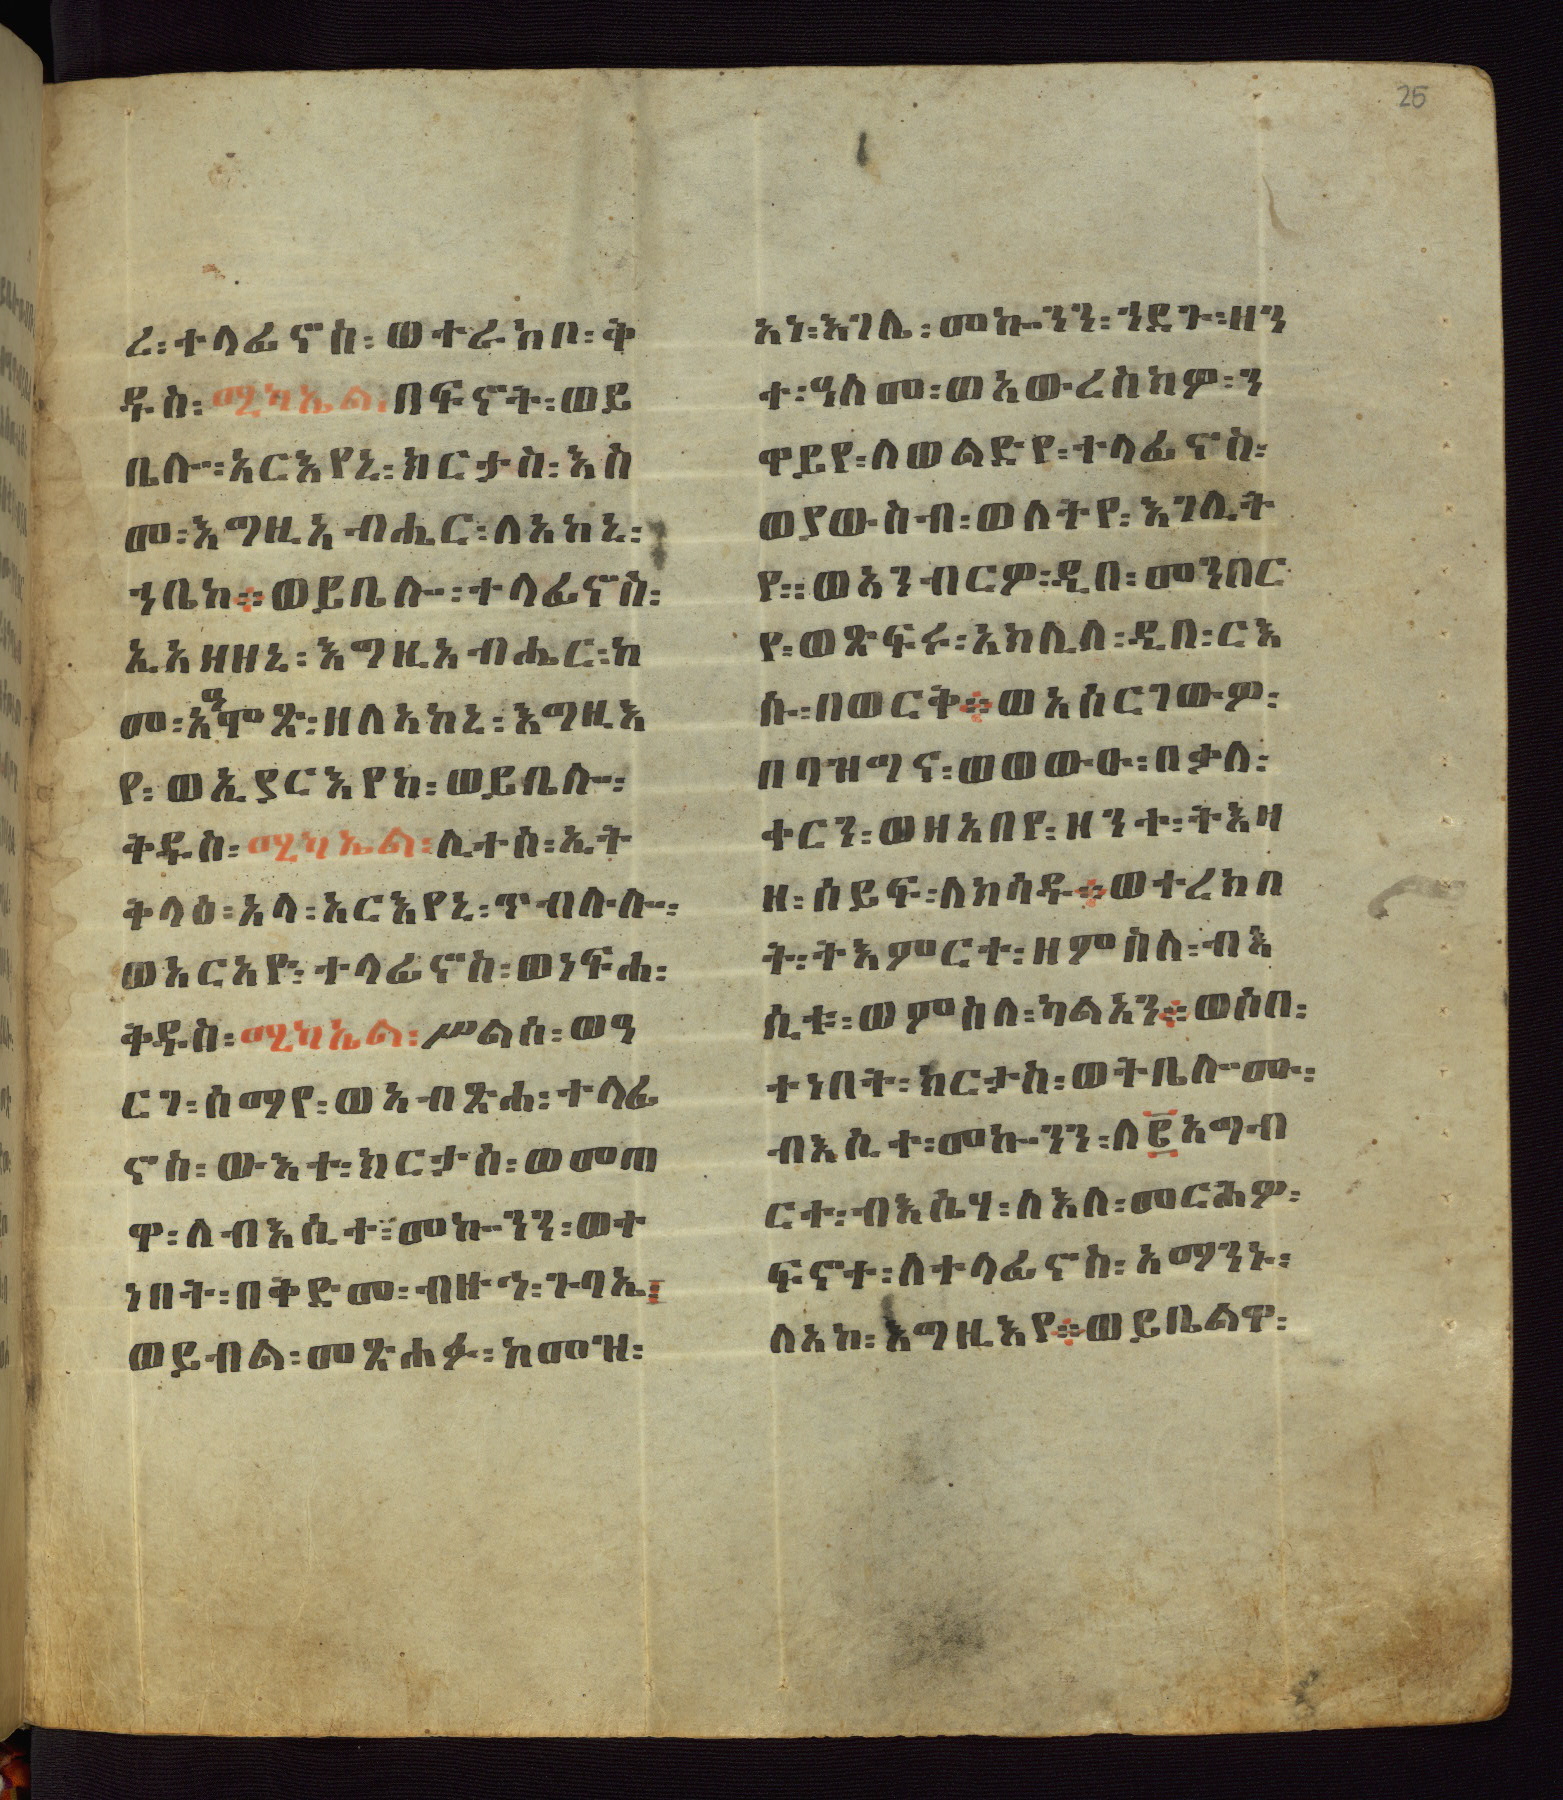 25
ረ፡ተላፊኖስ፡ወተራከቦ፡ቅ
ዱስ፡ሚካኤል፡በፍኖት፡ወይ
ቤሎ፡አርእየኒ፡ክርታስ፡እስ
መ፡እግዚአብሔር፡ለአከኒ፡
ኀቤከ፨ወይቤሎ፡ተላፊኖስ፡
ኢአዘዘኒ፡እግዚአብሔር፡ከ
መ፡አዓምፅ፡ዘለአከኒ፡እግዚእ
የ፡ወኢያርእየከ፡ወይቤሎ፡
ቅዱስ፡ሚካኤል፡ሊተሰ፡ኢት
ቅላዕ፡አላ፡አርእየኒ፡ጥብሉሎ፡
ወአርአዮ፡ተላፊኖስ፡ወነፍሐ፡
ቅዱስ፡ሚካኤል፡ሥልሰ፡ወዓ
ርገ፡ሰማየ፡ወአብጽሐ፡ተላፊ
ኖስ፡ውእተ፡ክርታሰ፡ወመጠ
ዋ፡ለብእሲተ፡መኰንን፡ወተ
ነበት፡በቅድመ፡ብዙኅ፡ጉባኤ፡
ወይብል፡መጽሐፉ፡ከመዝ፡
አነ፡እገሌ፡መኰንን፡ኀደጉ፡ዘን
ተ፡ዓለመ፡ወአውረስክዎ፡ን
ዋይየ፡ለወልድየ፡ተላፊኖስ፡
ወያውስብ፡ወለትየ፡እገሊት
የ፡፡ወአንብርዎ፡ዲበ፡መንበር
የ፡ወጽፍሩ፡አክሊለ፡ዲበ፡ርእ
ሱ፡በወርቅ፨ወአሰርገውዎ፡
በባዝግና፡ወወውሁ፡በቃለ፡
ቀርን፡ወዘአበየ፡ዘንተ፡ትእዛ
ዘ፡ሰይፍ፡ለክሳዱ፨ወተረከበ
ት፡ትእምርተ፡ዘምስለ፡ብእ
ሲቱ፡ወምስለ፡ካልእን፨ወሶበ፡
ተነበት፡ክርታስ፡ወትቤሎሙ፡
ብእሲተ፡መኰንን፡ለ፪አግብ
ርተ፡ብእሴሃ፡ለእለ፡መርሕዎ፡
ፍኖተ፡ለተላፊኖስ፡አማንኑ፡
ለአከ፡እግዚእየ፨ወይቤልዋ፡